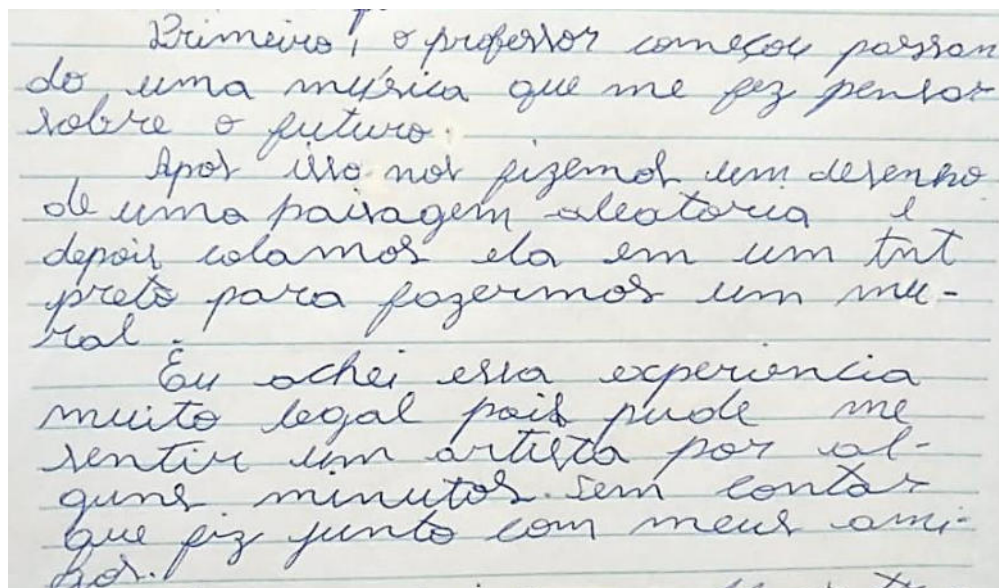 Primeiro, o professor começou passan
do uma música que me fez pensar
sobre o futuro.
Apos isso nos fizemos um desenho
de uma paisagem aleatoria e
depois colamos ela em um tnt
preto para fazermos um mu-
ral.
Eu achei essa experiencia
muito legal pois pude me
sentir um artista por al-
guns minutos. Sem contar
que fiz junto com meus ami-
gos.